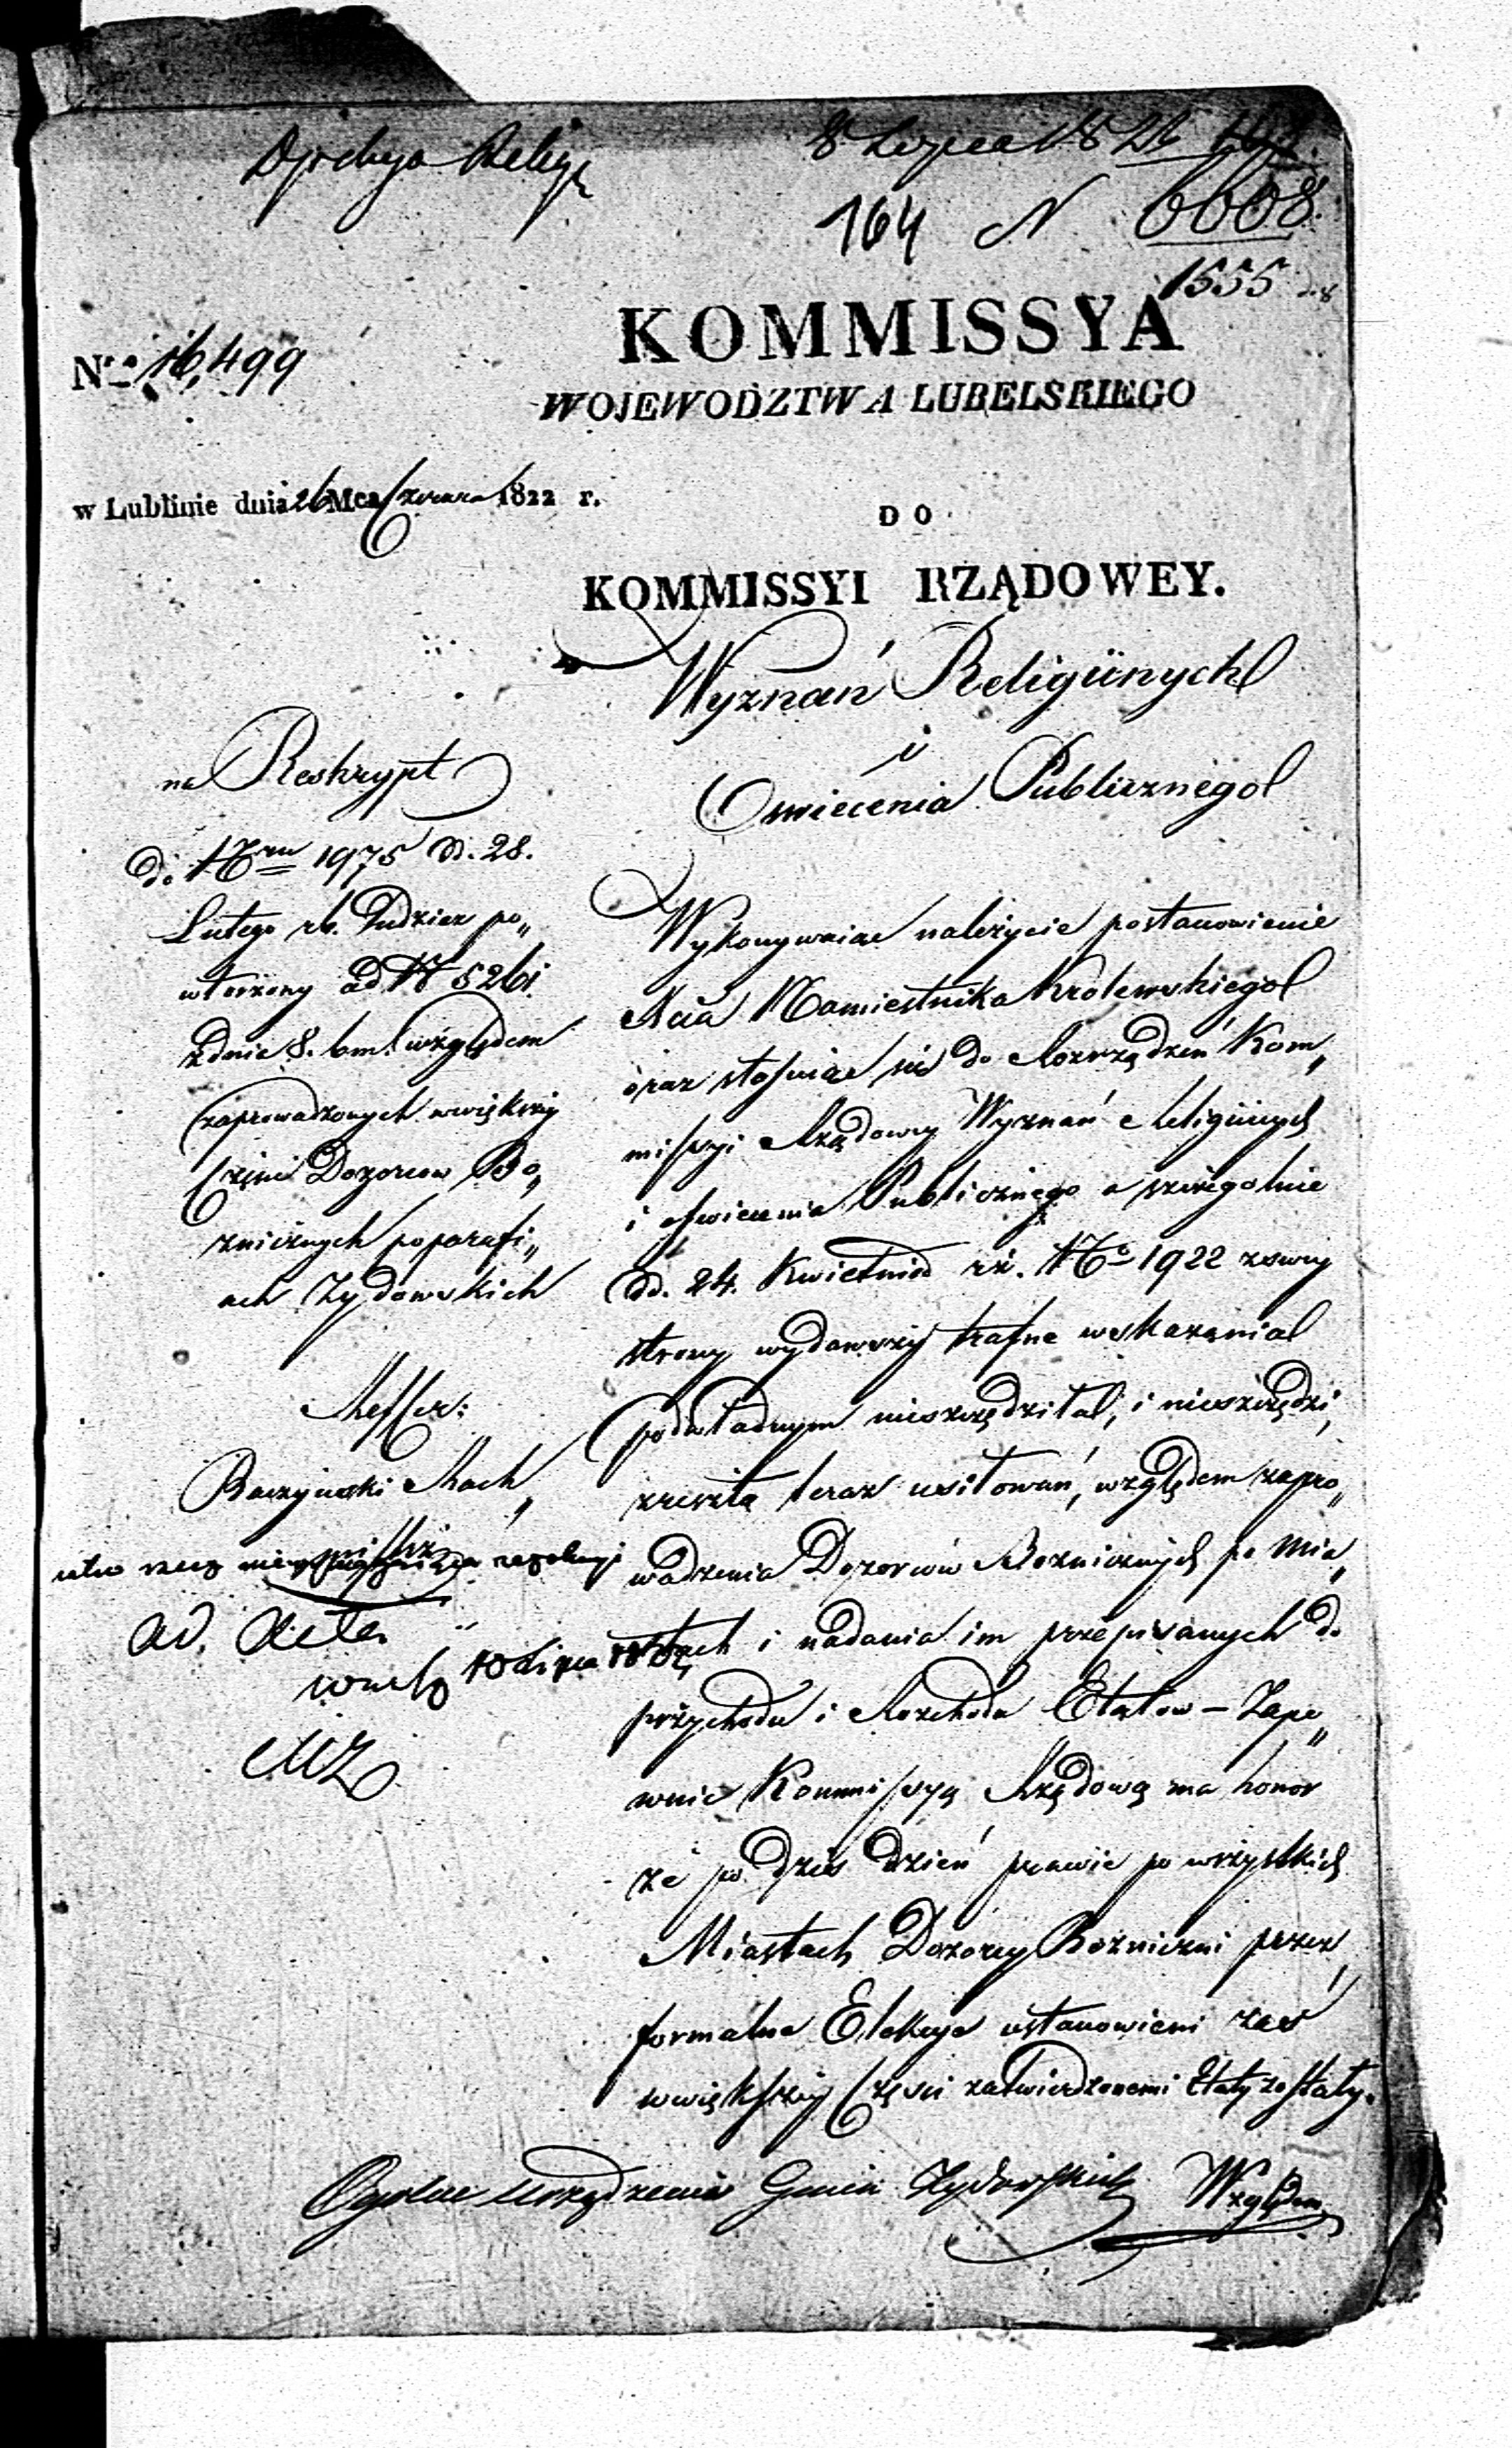 8 Lipca 1826
164 N 6608.
1555
KOMMISSYA
WOJEWODZTWA LUBELSKIEGO
Nro 16,499
w Lublinie dnia 26 Mca Czerwca 1822 r.
DO
KOMMISSYI RZĄDOWEY.
Wyznań Religiinych
i
Oswiecenia Publicznego
na Reskrypt
do Nru 1975 dd. 28.
Lutego rb. Tudziez po„
wtorzony ad N 5261.
z dnia 8. bm. względem
zaprowadzonych w większey
Części Dozorcow Bo„
zniczych po parafi„
ach Zydowskich
Reffer:
Baczynski Rach„
mistrz
rezolucyi
ad. acta
10 Lipca
Wykonywaiąc należycie postanowienie
Xcia Namiestnika Krolewskiego
oraz stosuiąc się do Rozrządzeń Kom„
missyi Rządowey Wyznań Religiinych
i oswiecenia Publicznego a szczegolnie
dd. 24. Kwietnia rz. No 1922 z swey
strony wydawszy trafne wskazania
podwładnym nieszczędziła, i nieszczędzi,
zreszta teraz usiłowań, względem zapro„
wadzenia Dozorców Bozniczych po Mia„
stach i nadania im przepisanych do
przychodu i Rozchodu Etatow – Zape„
wnic Kommissyą Rządową ma honor
że po dzis dzień prawie po wszystkich
Miastach Dozorcy Bozniczni przez
formalne Elekcye ustanowieni zas
w większey Częsci zatwierdzonemi Etaty zostały.
Ogolne urządzenia Gmin Zydowskich Względem